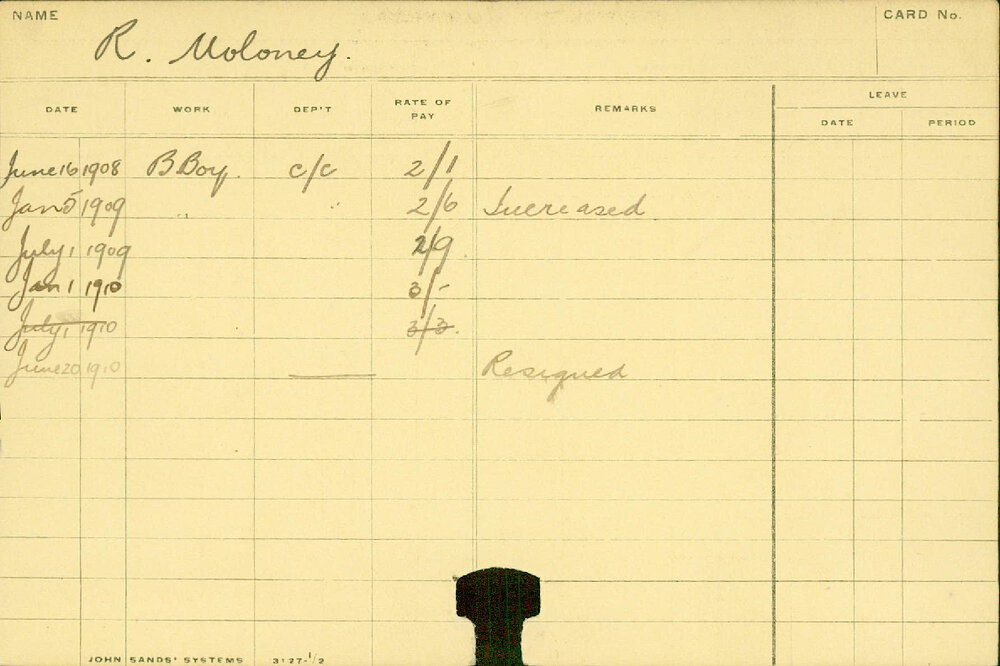 NAME
CARD No.
R. Moloney.
DATE WORK DEP'T RATE OF PAY REMARKS LEAVE
DATE PERIOD
June 16 1908 B Boy. c/c 2/1
Jan 5 1909 " " 2/6 Increased
July 1 1909 2/9
Jan 1 1910 3/-
July 1 1910 3/3.
June 20 1910 Resigned
JOHN SANDS' SYSTEMS 3127-1/2